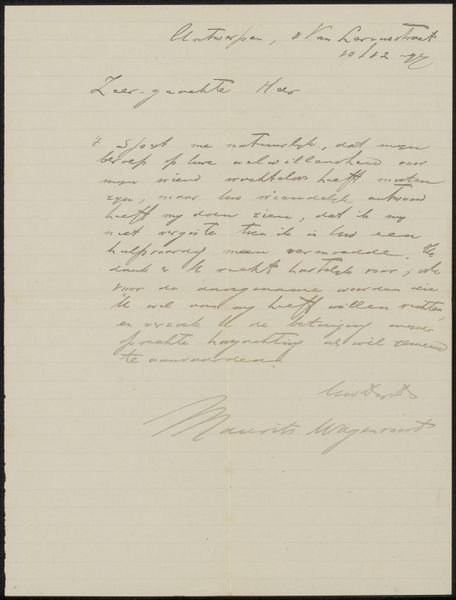 Antwerpen, 8 Van Lariusstraat
10/12 -97
Zeer-geachte Heer
't spijt me natuurlijk, dat mijn
beroep op Uwe welwillendheid voor
mijn vriend vruchteloos heeft moeten
zijn, maar Uw vriendelijk antwoord
heeft mij doen zien, dat ik mij
niet vergiste toen ik in Uw een
hulpvaardig man vermoedde. Ik
dank U recht hartelijk voor, als
voor de aangename woorden die
U wel aan mij heeft willen richten,
en verzoek U de betuiging mijner
oprechte hoogachting als wel gemeend
te aanvaarden.
Uw
Maurits Wagenvoort